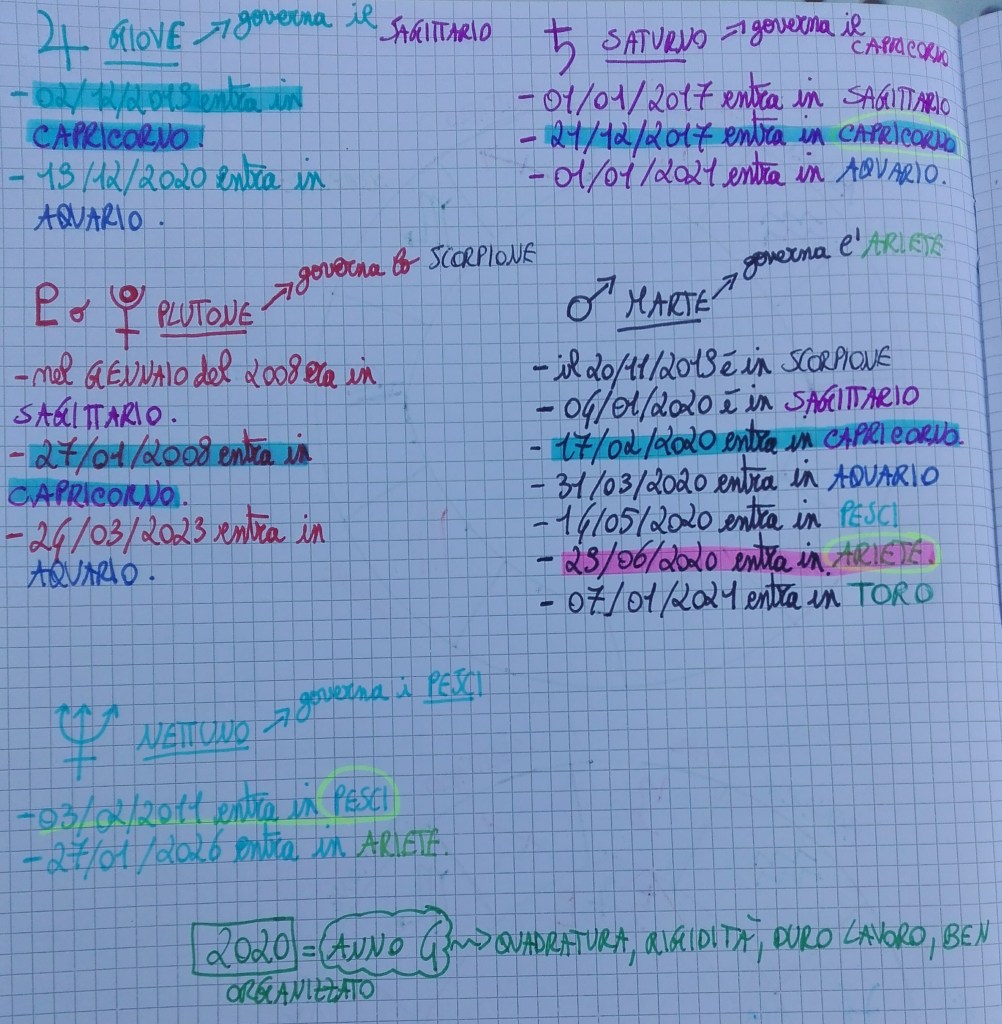 ♃ GIOVE → governa il SAGITTARIO
- 02/12/2019 entra in
CAPRICORNO.
- 19/12/2020 entra in
AQUARIO.
♄ SATURNO → governa il
CAPRICORNO
- 01/01/2017 entra in SAGITTARIO
- 21/12/2017 entra in CAPRICORNO
- 01/01/2021 entra in AQUARIO.
♇ o ⯓ PLUTONE → governa lo SCORPIONE
- nel GENNAIO del 2008 era in
SAGITTARIO.
- 27/01/2008 entra in
CAPRICORNO.
- 24/03/2023 entra in
AQUARIO.
♂ MARTE → governa l'ARIETE
- il 20/11/2019 è in SCORPIONE
- 04/01/2020 è in SAGITTARIO
- 17/02/2020 entra in CAPRICORNO.
- 31/03/2020 entra in AQUARIO
- 14/05/2020 entra in PESCI
- 29/06/2020 entra in ARIETE.
- 07/01/2021 entra in TORO
♆ NETTUNO → governa i PESCI
- 03/02/2011 entra in PESCI
- 27/01/2026 entra in ARIETE.
2020 = {ANNO 4} → QUADRATURA, RIGIDITÀ, DURO LAVORO, BEN
ORGANIZZATO